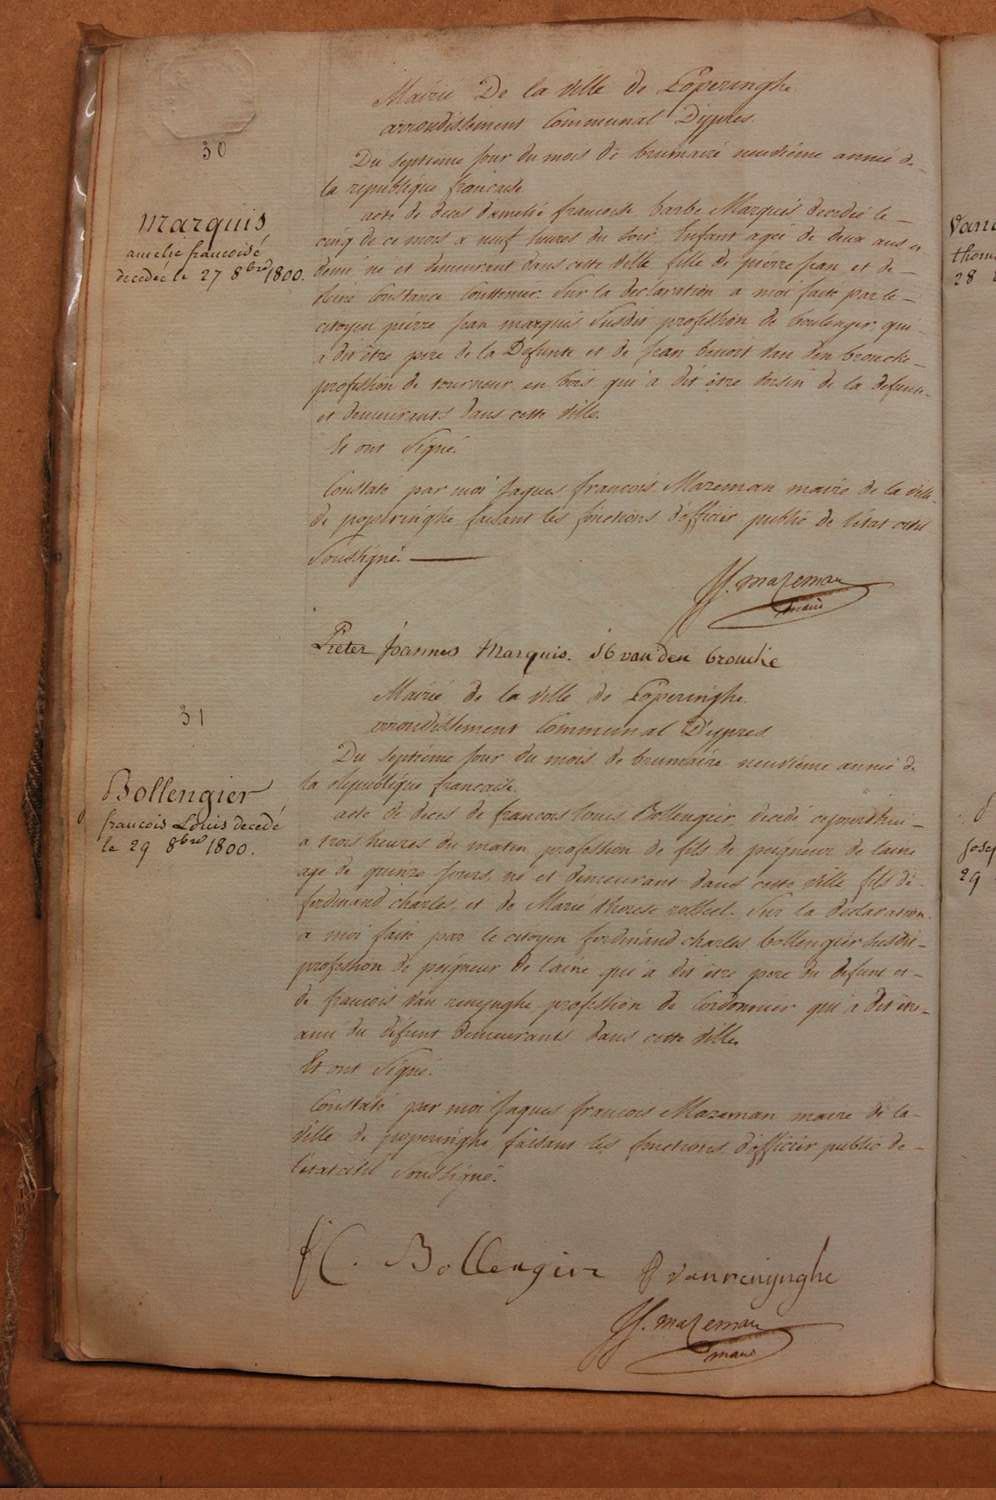 30
Marquis
amelie francoise
decedee le 27 8bre 1800.
Mairie De la ville de Poperinghe
arrondissement Communal D'ypres
Du septieme jour du mois de brumaire neuvieme année de
la republique francaise
acte de deces d'amelie francoise barbe Marquis decedée le
cinq de ce mois a neuf heures du soir. Enfant agée de deux ans et
demi né et demeurant dans cette ville fille de pierre jean et de
Constance Sur la declaration a moi faite par le
citoyen pierre jean marquis susdit profession de boulenger qui
a dit être pere de la Defunte et de jean benoit van den brouche
profession de tourneur en bois qui a dit être voisin de la defunte
et demeurants dans cette ville.
Et ont signé.
Constaté par moi jaques francois Mazeman maire de la ville
de poperinghe faisant les fonctions d'officier public de l'etat civil
soussigné.
JJ. mazeman
maire
Pieter Joannes Marquis. j b van den brouche
31
Bollengier
francois Louis decedé
le 29 8bre 1800.
Mairie de la ville de Poperinghe
arrondissement Communal D'ypres
Du septieme jour du mois de brumaire neuvieme année de
la republique francaise.
acte de deces de francois louis Bollengier decedé cejourd'hui
a trois heures du matin profession de fils de peigneur de laine
age de quinze jours, né et demeurant dans cette ville fils de
ferdinand charles, et de Marie therese Sur la declaration
a moi faite par le citoyen ferdinand charles bollengier susdit
profession de peigneur de laine qui a dit être pere du defunt et
de francois van renynghe profession de Cordonnier qui a dit être
ami du defunt demeurants dans cette ville.
Et ont signé.
Constaté par moi jaques francois Mazeman maire de la
ville de poperinghe faisant les fonctions d'officier public de
l'etat civil soussigné.
f C. Bollengier
vanrenynghe
JJ. mazeman
maire
Vand
thom
28
Josep
29